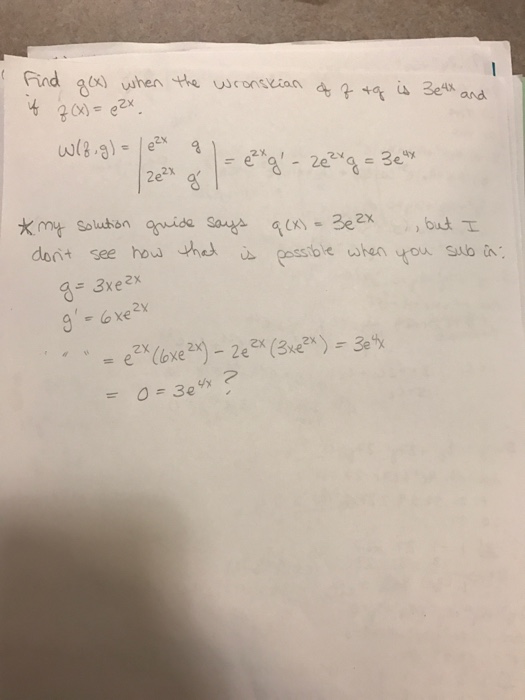 1
Find g(x) when the wronskian of f + g is 3e^4x and
if f(x) = e^2x.
W(f,g) = | e^2x g | = e^2x g' - 2e^2x g = 3e^4x
| 2e^2x g' |
* my solution guide says g(x) = 3e^2x , but I
don't see how that is possible when you sub in:
g = 3xe^2x
g' = 6xe^2x
" " = e^2x (6xe^2x) - 2e^2x (3xe^2x) = 3e^4x
= 0 = 3e^4x ?